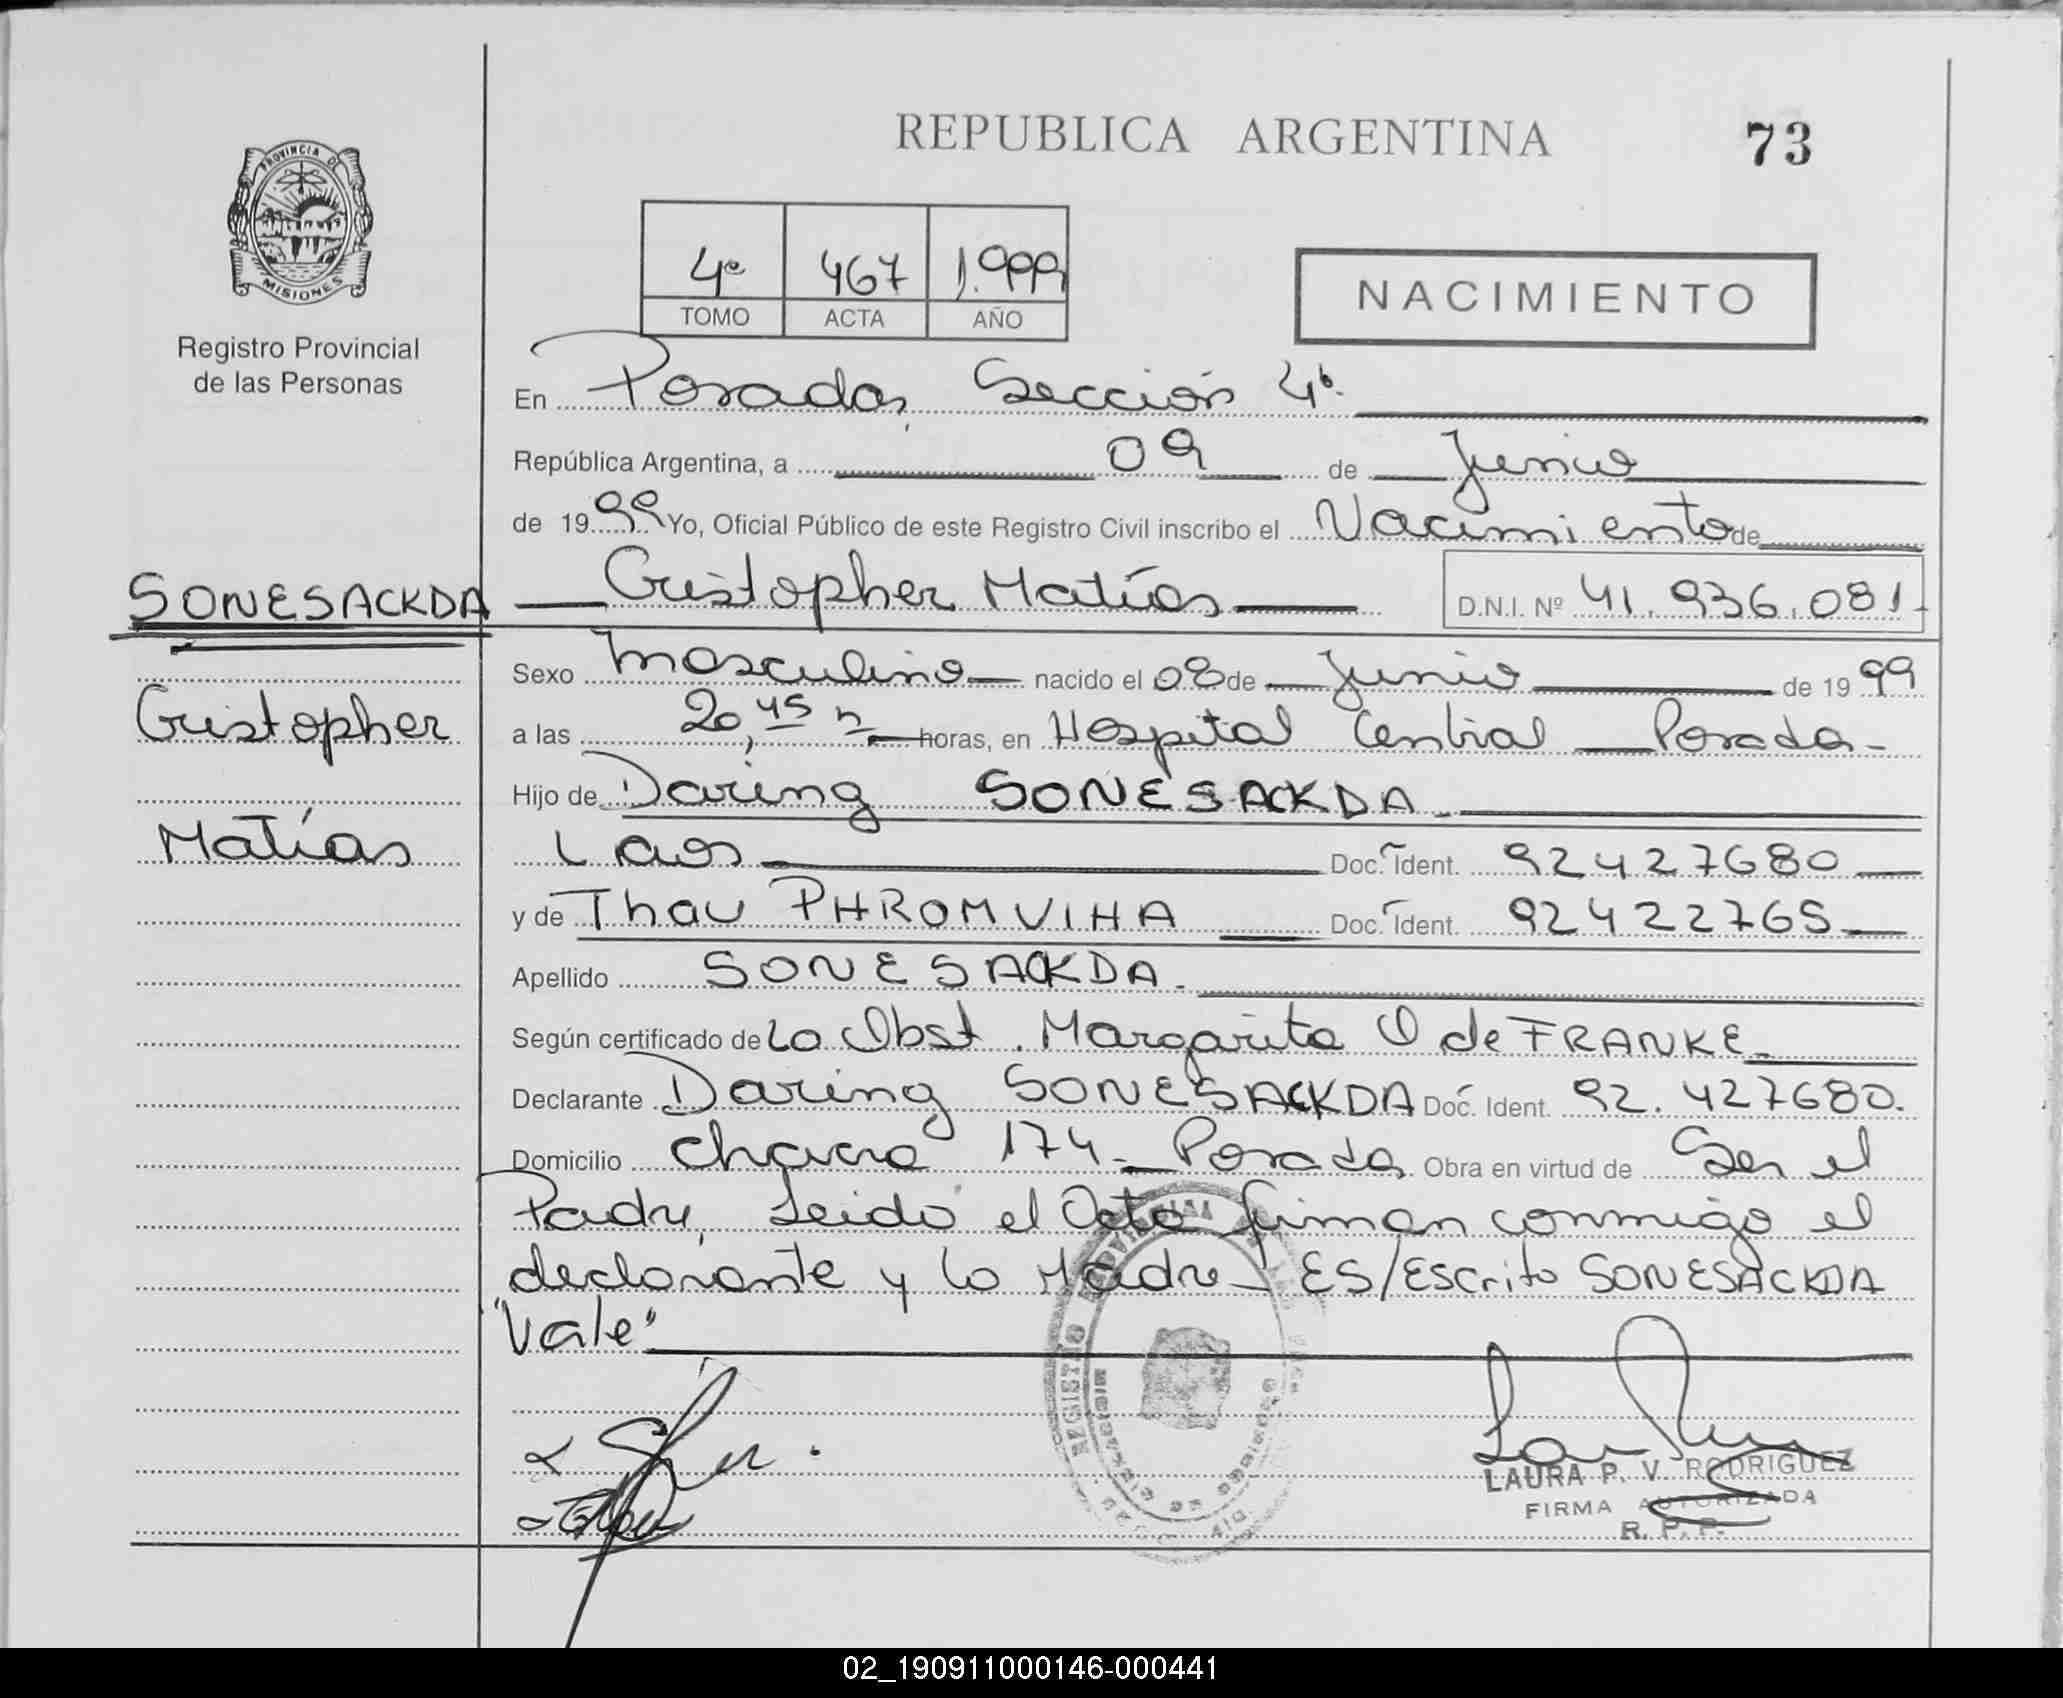 REPUBLICA ARGENTINA
73
PROVINCIA DE
MISIONES
Registro Provincial
de las Personas
4º 467 1.999
TOMO ACTA AÑO
NACIMIENTO
En Posadas, Sección 4º.
República Argentina, a 09 de Junio
de 1999 Yo, Oficial Público de este Registro Civil inscribo el Nacimiento de
SONESACKDA
Cristopher Matías D.N.I. Nº 41.936.081
Sexo Masculino nacido el 08 de Junio de 1999
Cristopher
a las 20,45 h horas, en Hospital Central Posadas
Hijo de Daring SONESACKDA
Matías
Laos Doc. Ident. 92427680
y de Thau PHROMVIHA Doc. Ident. 92422765
Apellido SONESACKDA.
Según certificado de La Obst. Margarita O de FRANKE
Declarante Daring SONESACKDA Doc. Ident. 92.427680.
Domicilio chacra 174 - Posadas Obra en virtud de Ser el
Padre, Leido el Acta firman conmigo el
declarante y la Madre - ES/Escrito SONESACKDA
"Vale"
REGISTRO PROVINCIAL DE LAS
LAURA P. V. RODRIGUEZ
FIRMA AUTORIZADA
R. P. P.
02_190911000146-000441